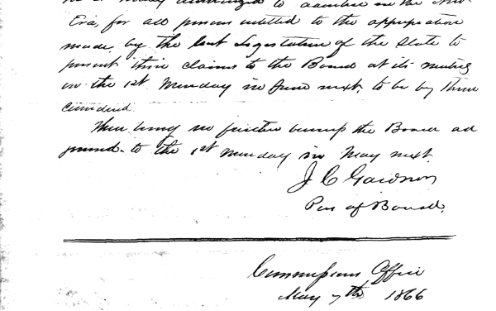 Era, for all persons entitled to the appropriation
made by the last Legislature of the State to
present their claims to the Board at its meeting
on the 1st Monday in June next, to be by them
considered.
There being no further business the Board ad
journed to the 1st Monday in May next.
J C Gardner
Pres of Board.
Commissioners Office
May 7th 1866